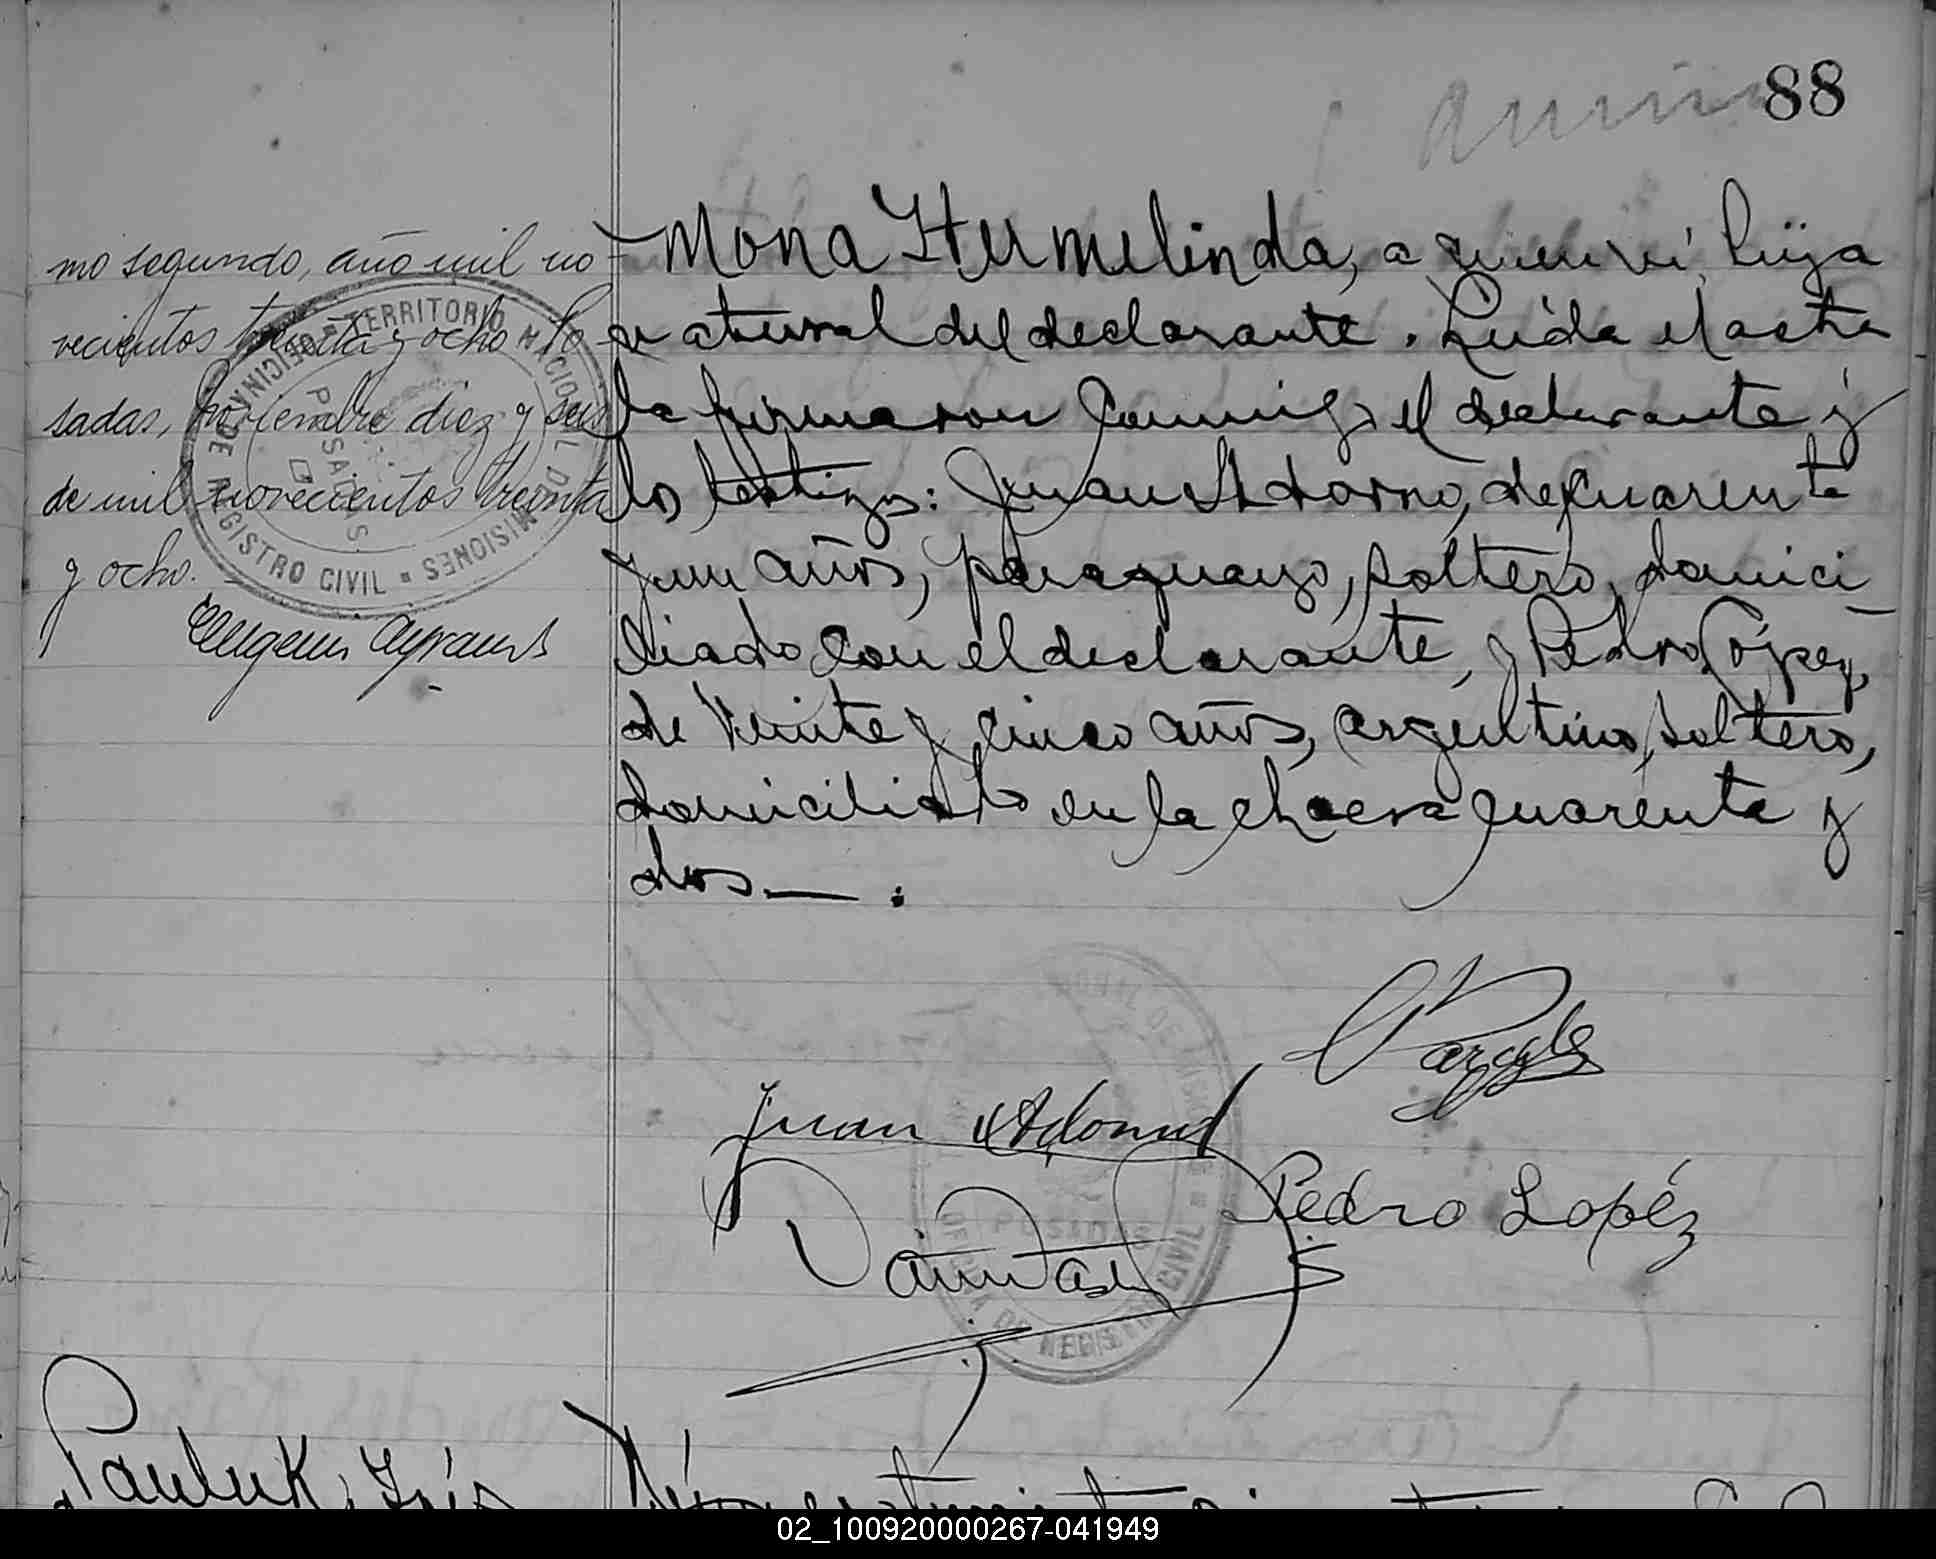 88
mo segundo, año mil no-
vecientos treinta y ocho. Po-
sadas, noviembre diez y seis
de mil novecientos treinta
y ocho.
OFICINA DE REGISTRO CIVIL
TERRITORIO NACIONAL DE MISIONES
POSADAS
Mona Hermelinda, a quien vi, hija
natural del declarante. Leída el acta
la firmaron conmigo el declarante y
los testigos: Juan Adorno, de cuarenta
y un años, paraguayo, soltero, domici
liado con el declarante, y Pedro López,
de veinte y cinco años, argentino, soltero,
domiciliado en la chacra cuarenta y
dos — .
Juan Adorno
Pedro Lopéz
OFICINA DE REGISTRO CIVIL
POSADAS
Pauluk, Inés
02_100920000267-041949